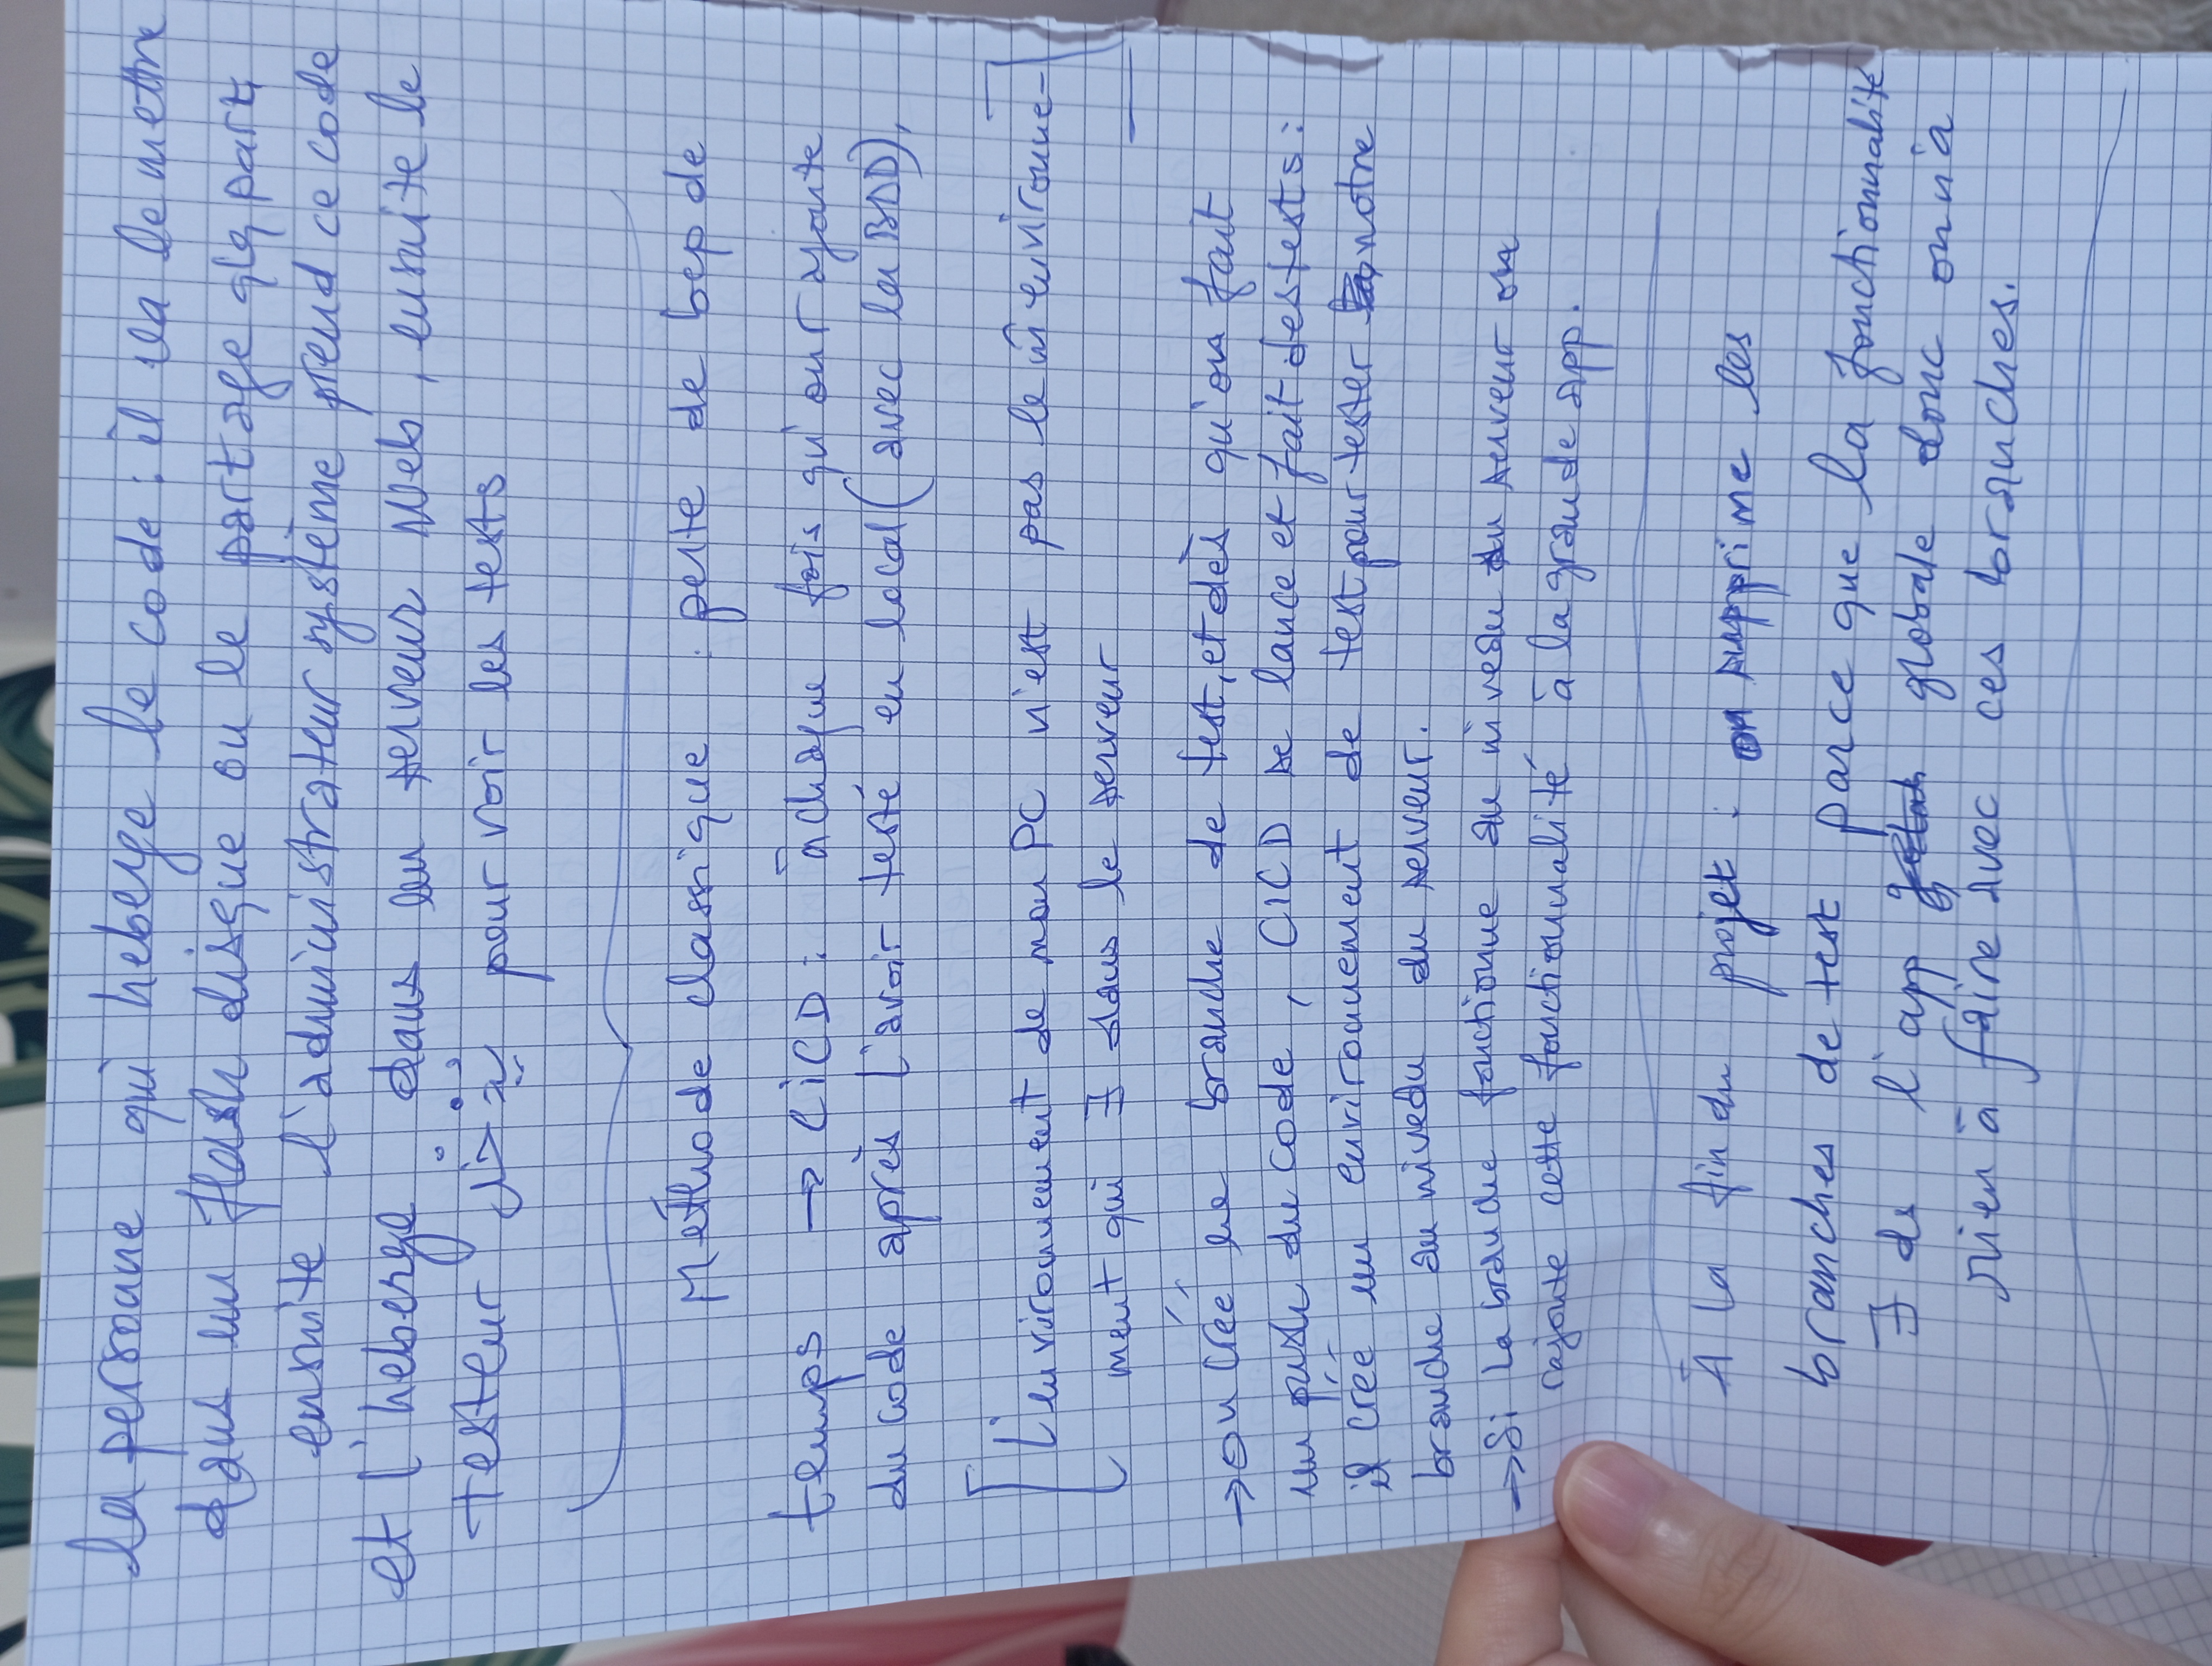 la personne qui heberge le code : il va le mettre
dans un flash disque ou le partage qlq part,
ensuite l'administrateur système prend ce code
et l'heberge dans un serveur Web, ensuite le
testeur يدخل pour voir les tests
Méthode classique : perte de bcp de
temps → CiCD : à chaque fois qu'on rajoute
du code après l'avoir testé en local (avec la BDD),
[L'environnement de mon PC n'est pas le m̂ environne-
ment qui ∃ dans le serveur]
→ on créé une branche de test, et dès qu'on fait
un push du code, CICD se lance et fait des tests :
il créé un environnement de test pour tester notre
branche au niveau du serveur.
→ Si la branche fonctionne au niveau du serveur on
rajoute cette fonctionnalité à la grande app.
À la fin du projet : on supprime les
branches de test parce que la fonctionnalité
∃ ds l'app globale donc on n'a
rien à faire avec ces branches.